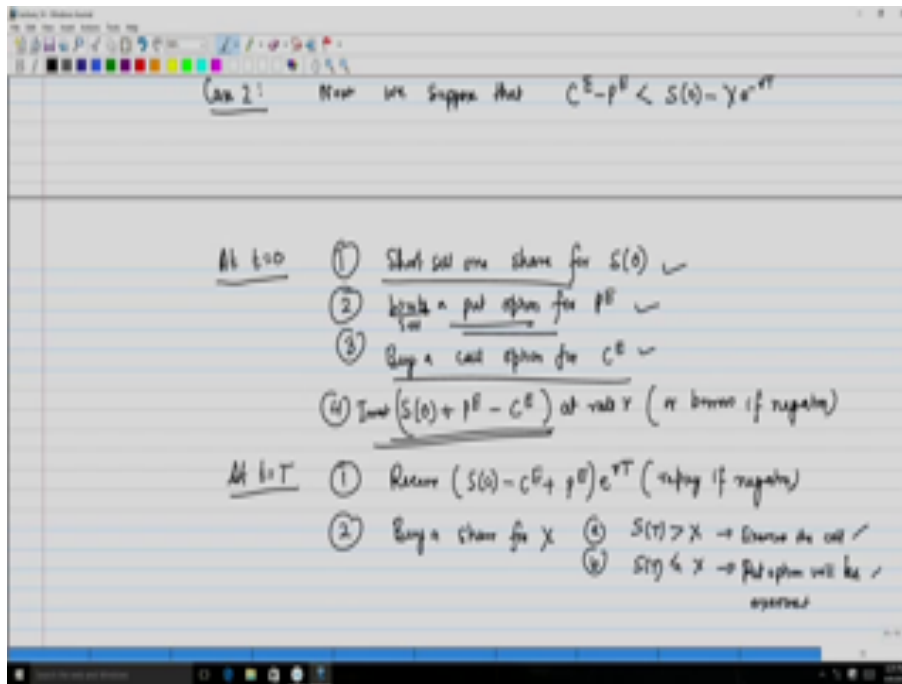 Case 2: Now we suppose that C^E - P^E < S(0) - X e^{-rT}
At t=0 ① Short sell one share for S(0) ✓
② Write a put option for P^E ✓
Sell
③ Buy a call option for C^E ✓
④ Invest (S(0) + P^E - C^E) at rate r (or borrow if negative)
At t=T ① Receive (S(0) - C^E + P^E) e^{rT} (repay if negative)
② Buy a share for X ⓐ S(T) > X → Exercise the call ✓
ⓑ S(T) ≤ X → Put option will be ✓
exercised